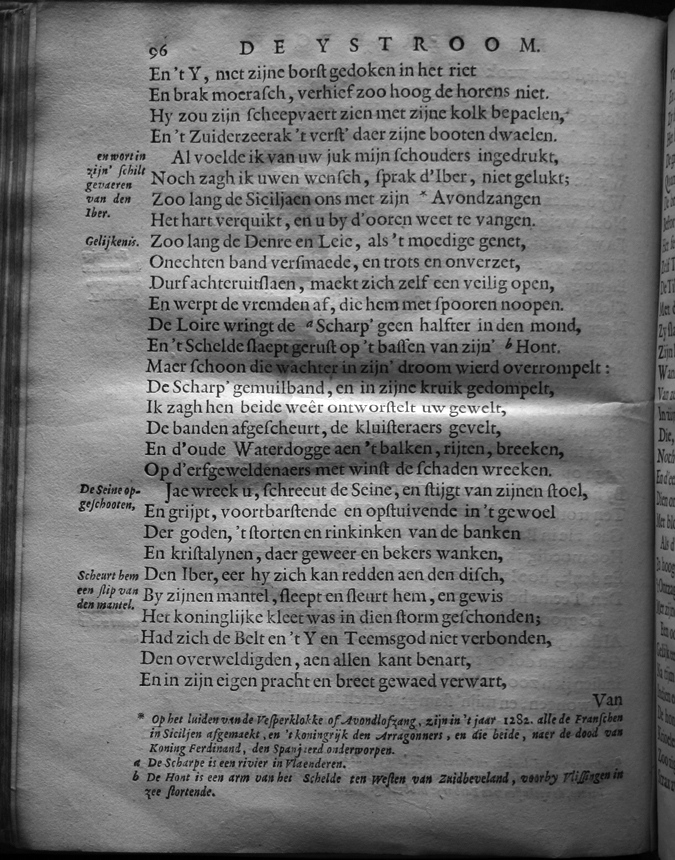 96 DE YSTROOM.
En 't Y, met zijne borſt gedoken in het riet
En brak moeraſch, verhief zoo hoog de horens niet.
Hy zou zijn ſcheepvaert zien met zijne kolk bepaelen,
En 't Zuiderzeerak 't verſt' daer zijne booten dwaelen.
en wort in
zijn' ſchilt
gevaeren
van den
Iber.
Al voelde ik van uw juk mijn ſchouders ingedrukt,
Noch zagh ik uwen wenſch, ſprak d'Iber, niet gelukt;
Zoo lang de Siciljaen ons met zijn * Avondzangen
Het hart verquikt, en u by d'ooren weet te vangen.
Gelijkenis.
Zoo lang de Denre en Leie, als 't moedige genet,
Onechten band verſmaede, en trots en onverzet,
Durf achteruitſlaen, maekt zich zelf een veilig open,
En werpt de vremden af, die hem met ſpooren noopen.
De Loire wringt de a Scharp' geen halfter in den mond,
En 't Schelde ſlaept geruſt op 't baſſen van zijn' b Hont.
Maer ſchoon die wachter in zijn' droom wierd overrompelt:
De Scharp' gemuilband, en in zijne kruik gedompelt,
Ik zagh hen beide weêr ontworſtelt uw gewelt,
De banden afgeſcheurt, de kluiſteraers gevelt,
En d'oude Waterdogge aen 't balken, rijten, breeken,
Op d'erfgeweldenaers met winſt de ſchaden wreeken.
De Seine op-
geſchooten,
Jae wreek u, ſchreeut de Seine, en ſtijgt van zijnen ſtoel,
En grijpt, voortbarſtende en opſtuivende in 't gewoel
Der goden, 't ſtorten en rinkinken van de banken
En kriſtalynen, daer geweer en bekers wanken,
Scheurt hem
een ſlip van
den mantel.
Den Iber, eer hy zich kan redden aen den diſch,
By zijnen mantel, ſleept en ſleurt hem, en gewis
Het koninglijke kleet was in dien ſtorm geſchonden;
Had zich de Belt en 't Y en Teemsgod niet verbonden,
Den overweldigden, aen allen kant benart,
En in zijn eigen pracht en breet gewaed verwart,
Van
* Op het luiden van de Veſperklokke of Avondlofzang, zijn in 't jaar 1282. alle de Franſchen
in Siciljen afgemaekt, en 't koningrijk den Arragonners, en die beide, naer de dood van
Koning Ferdinand, den Spanjaerd onderworpen.
a De Scharpe is een rivier in Vlaenderen.
b De Hont is een arm van het Schelde ten Weſten van Zuidbeveland, voorby Vliſſingen in
zee ſtortende.